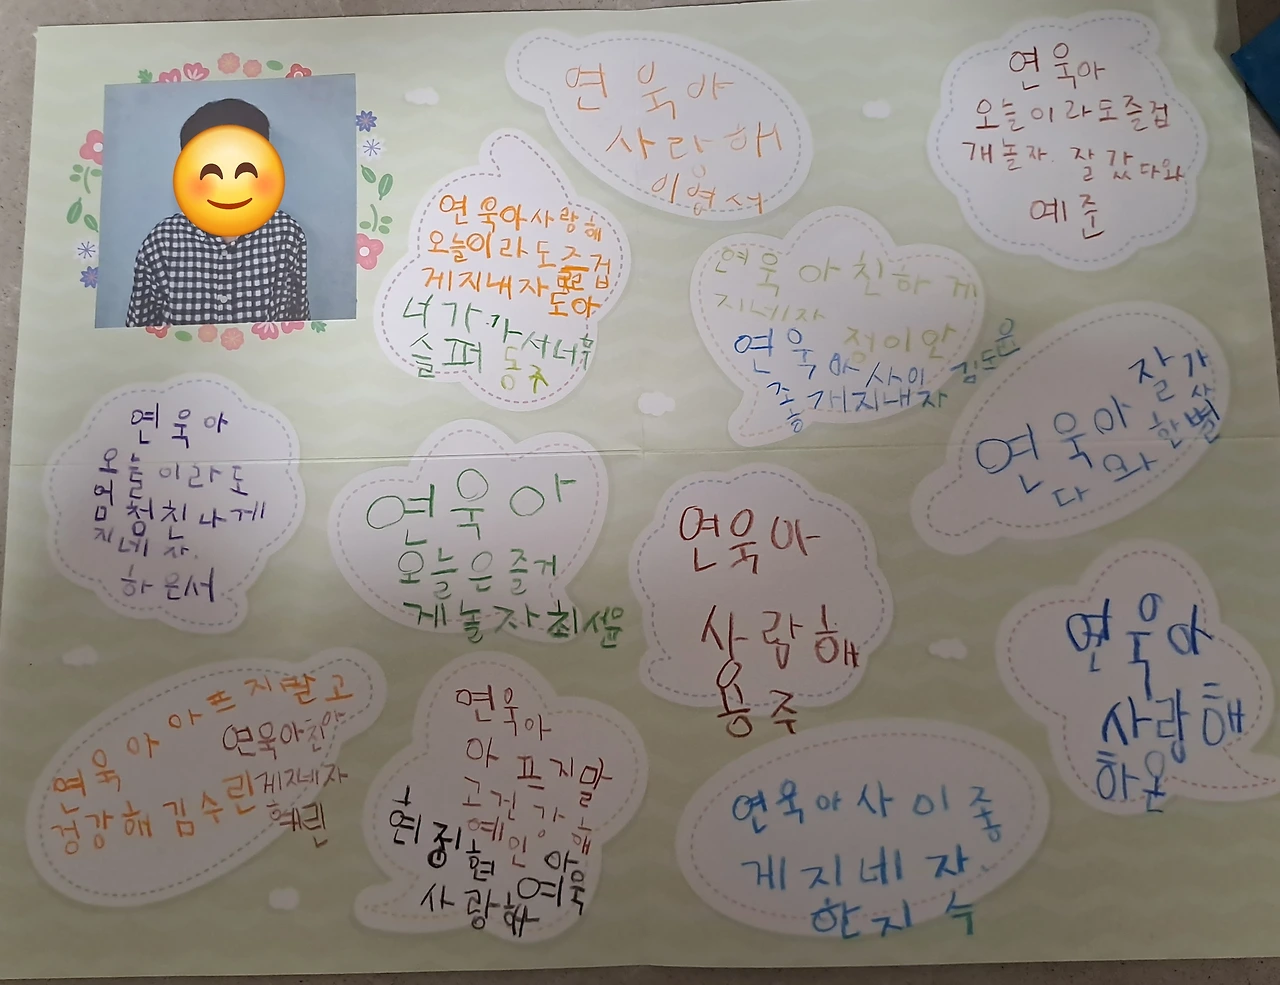 연욱아
사랑해
이영서
연욱아
오늘이라도즐겁
개놀자. 잘갔다와
예준
연욱아사랑해
오늘이라도즈겁
게지내자
도아
너가 가서너무
슬퍼 동주
연욱아친하게
지네자
정이안
연욱아사이
좋개지내자
김도윤
연욱아 잘가
다와
한별
연욱아
오늘이라도
엄청친나게
지네자.
하은서
연욱아
오늘은즐거
게놀자최서윤
연욱아
사람해
용주
연욱아
사랑해
하온
연욱아아프지말고
겅강해김수린
연욱아친하
게지네자
혜린
연욱아
아프지말
고건강해
예인
현중
연욱
사랑해
연욱아사이좋
게지네자
한지수